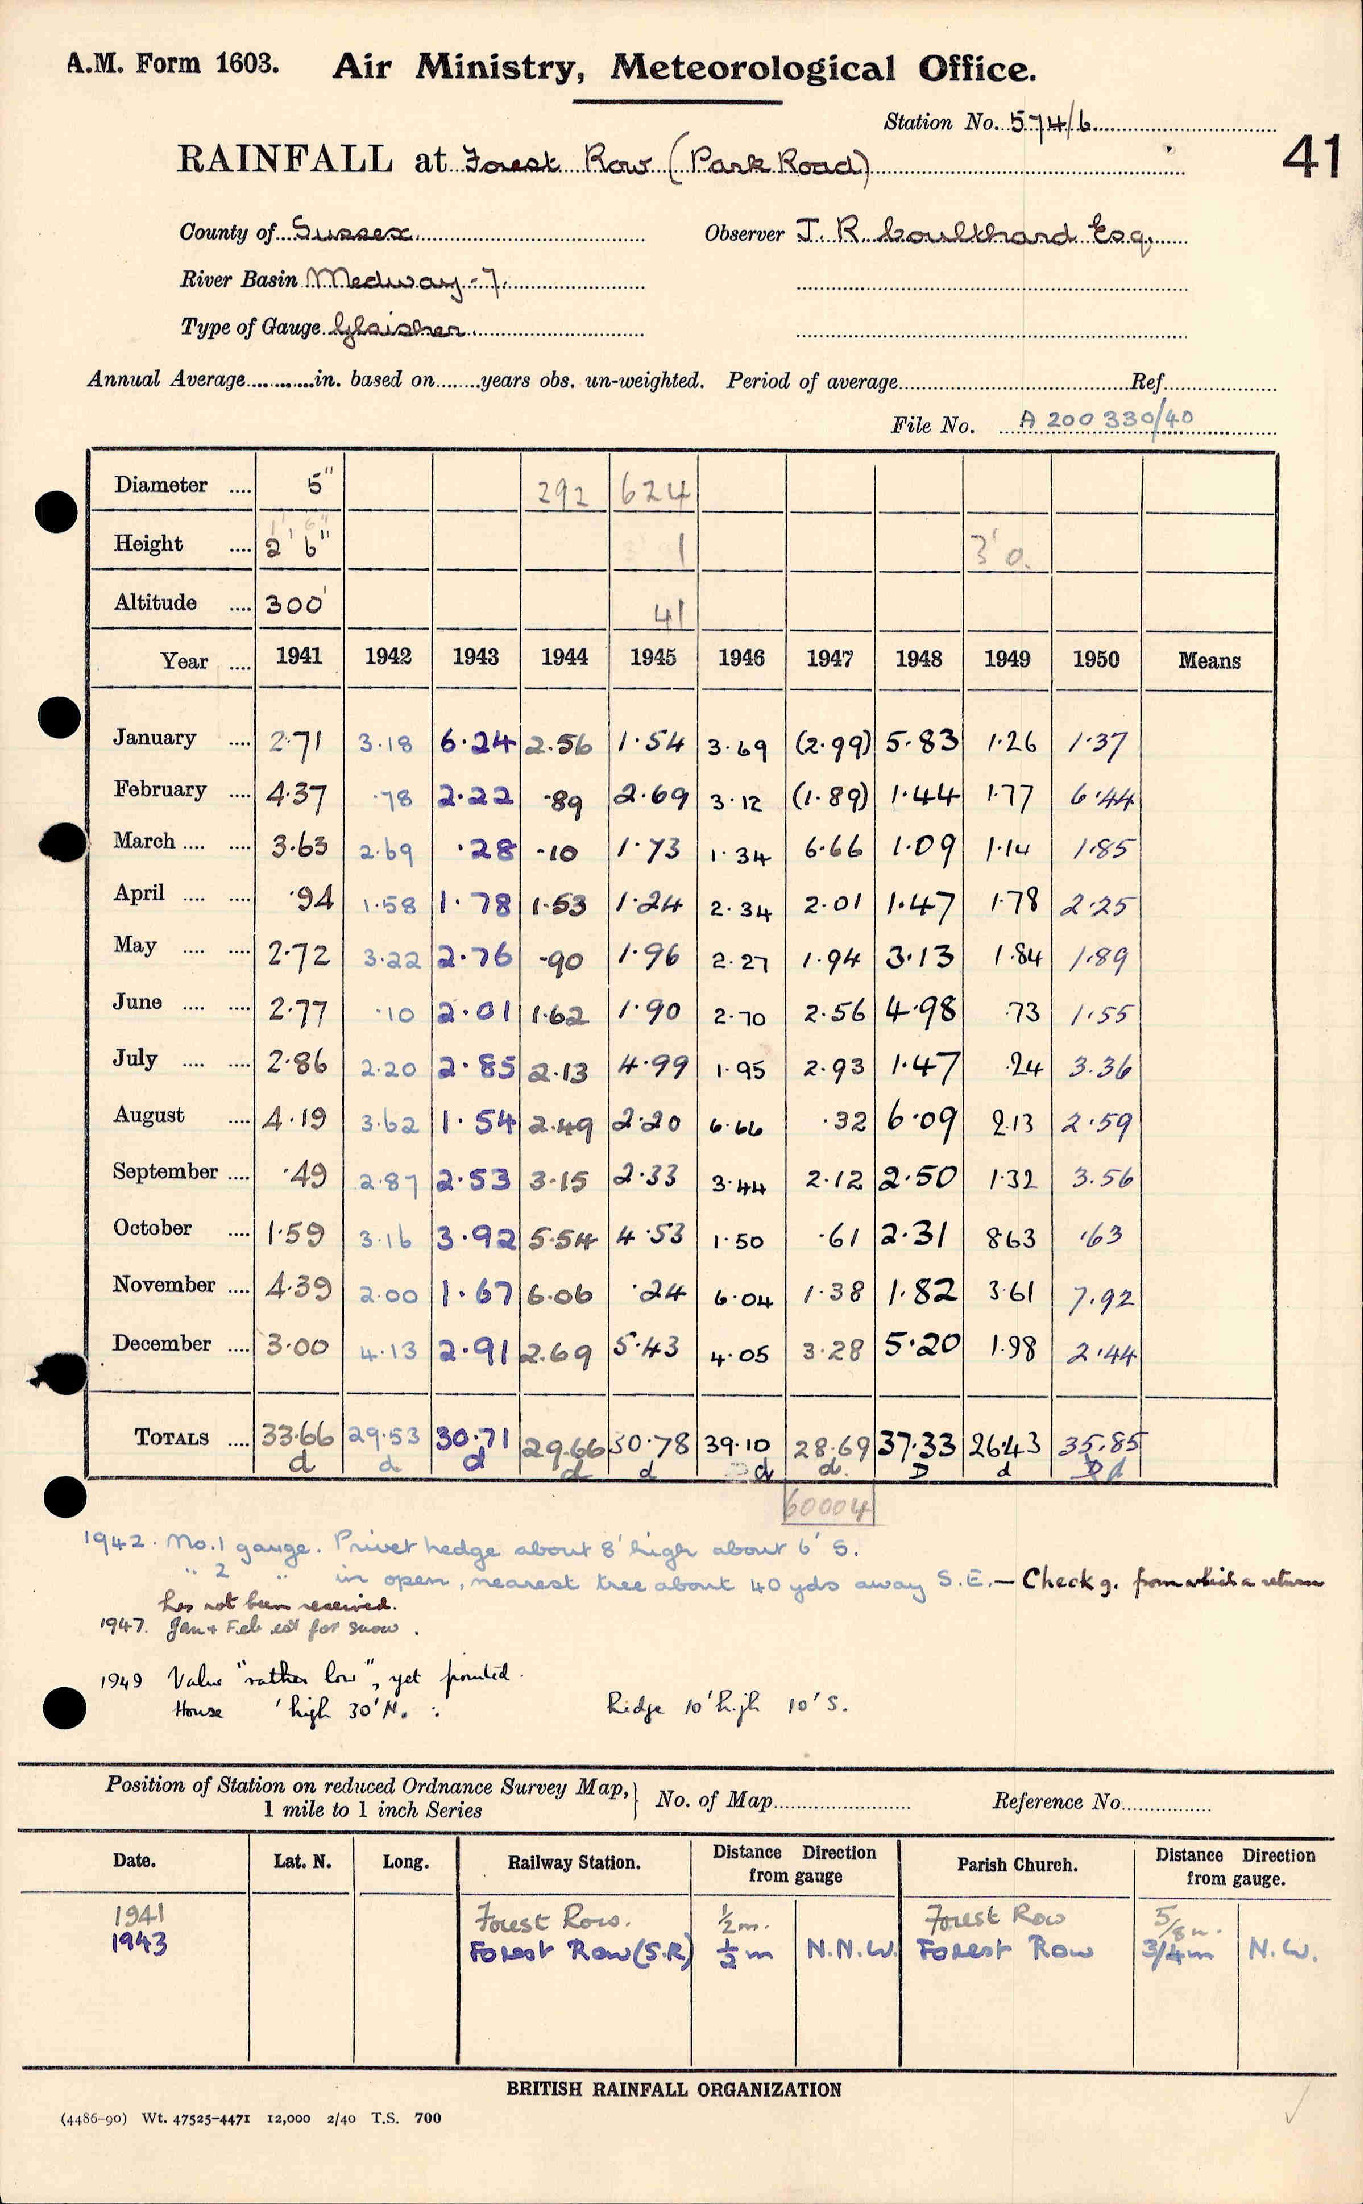 A.M. Form 1603. Air Ministry, Meteorological Office.
Station No. 574/6
41
RAINFALL at Forest Row (Park Road)
County of Sussex Observer J. R. Coulthard Esq.
River Basin Medway - 7.
Type of Gauge Glaisher
Annual Average............in. based on........years obs. un-weighted. Period of average........Ref........
File No. A 200 330/40
Diameter .... 5" 292 624
Height .... 2' 6" 1' 6" 1 3' 0.
Altitude .... 300' 41
Year .... 1941 1942 1943 1944 1945 1946 1947 1948 1949 1950 Means
January .... 2·71 3·18 6·24 2·56 1·54 3·69 (2·99) 5·83 1·26 1·37
February .... 4·37 ·78 2·22 ·89 2·69 3·12 (1·89) 1·44 1·77 6·44
March .... .... 3·63 2·69 ·28 ·10 1·73 1·34 6·66 1·09 1·14 1·85
April .... .... ·94 1·58 1·78 1·53 1·24 2·34 2·01 1·47 1·78 2·25
May .... .... 2·72 3·22 2·76 ·90 1·96 2·27 1·94 3·13 1·84 1·89
June .... .... 2·77 ·10 2·01 1·62 1·90 2·70 2·56 4·98 ·73 1·55
July .... .... 2·86 2·20 2·85 2·13 4·99 1·95 2·93 1·47 ·24 3·36
August .... 4·19 3·62 1·54 2·49 2·20 6·66 ·32 6·09 2·13 2·59
September .... ·49 2·87 2·53 3·15 2·33 3·44 2·12 2·50 1·32 3·56
October .... 1·59 3·16 3·92 5·54 4·53 1·50 ·61 2·31 8·63 ·63
November .... 4·39 2·00 1·67 6·06 ·24 6·04 1·38 1·82 3·61 7·92
December .... 3·00 4·13 2·91 2·69 5·43 4·05 3·28 5·20 1·98 2·44
TOTALS .... 33·66 29·53 30·71 29·66 30·78 39·10 28·69 37·33 26·43 35·85
d d d d d d d D d d
60004
1942. No. 1 gauge. Privet hedge about 8' high about 6' S.
" 2 " in open, nearest tree about 40 yds away S.E. — Check g. from which a return
has not been received.
1947. Jan + Feb est for snow.
1949 Value "rather low", yet printed.
House ' high 30' N. : Ridge 10' high 10' S.
Position of Station on reduced Ordnance Survey Map,
1 mile to 1 inch Series
No. of Map........ Reference No........
Date. Lat. N. Long. Railway Station. Distance Direction from gauge Parish Church. Distance Direction from gauge.
1941 Forest Row. ½ m. Forest Row 5/8 m.
1943 Forest Row (S.R) ½ m N.N.W. Forest Row 3/4 m N.W.
BRITISH RAINFALL ORGANIZATION
(4486-90) Wt. 47525-4471 12,000 2/40 T.S. 700